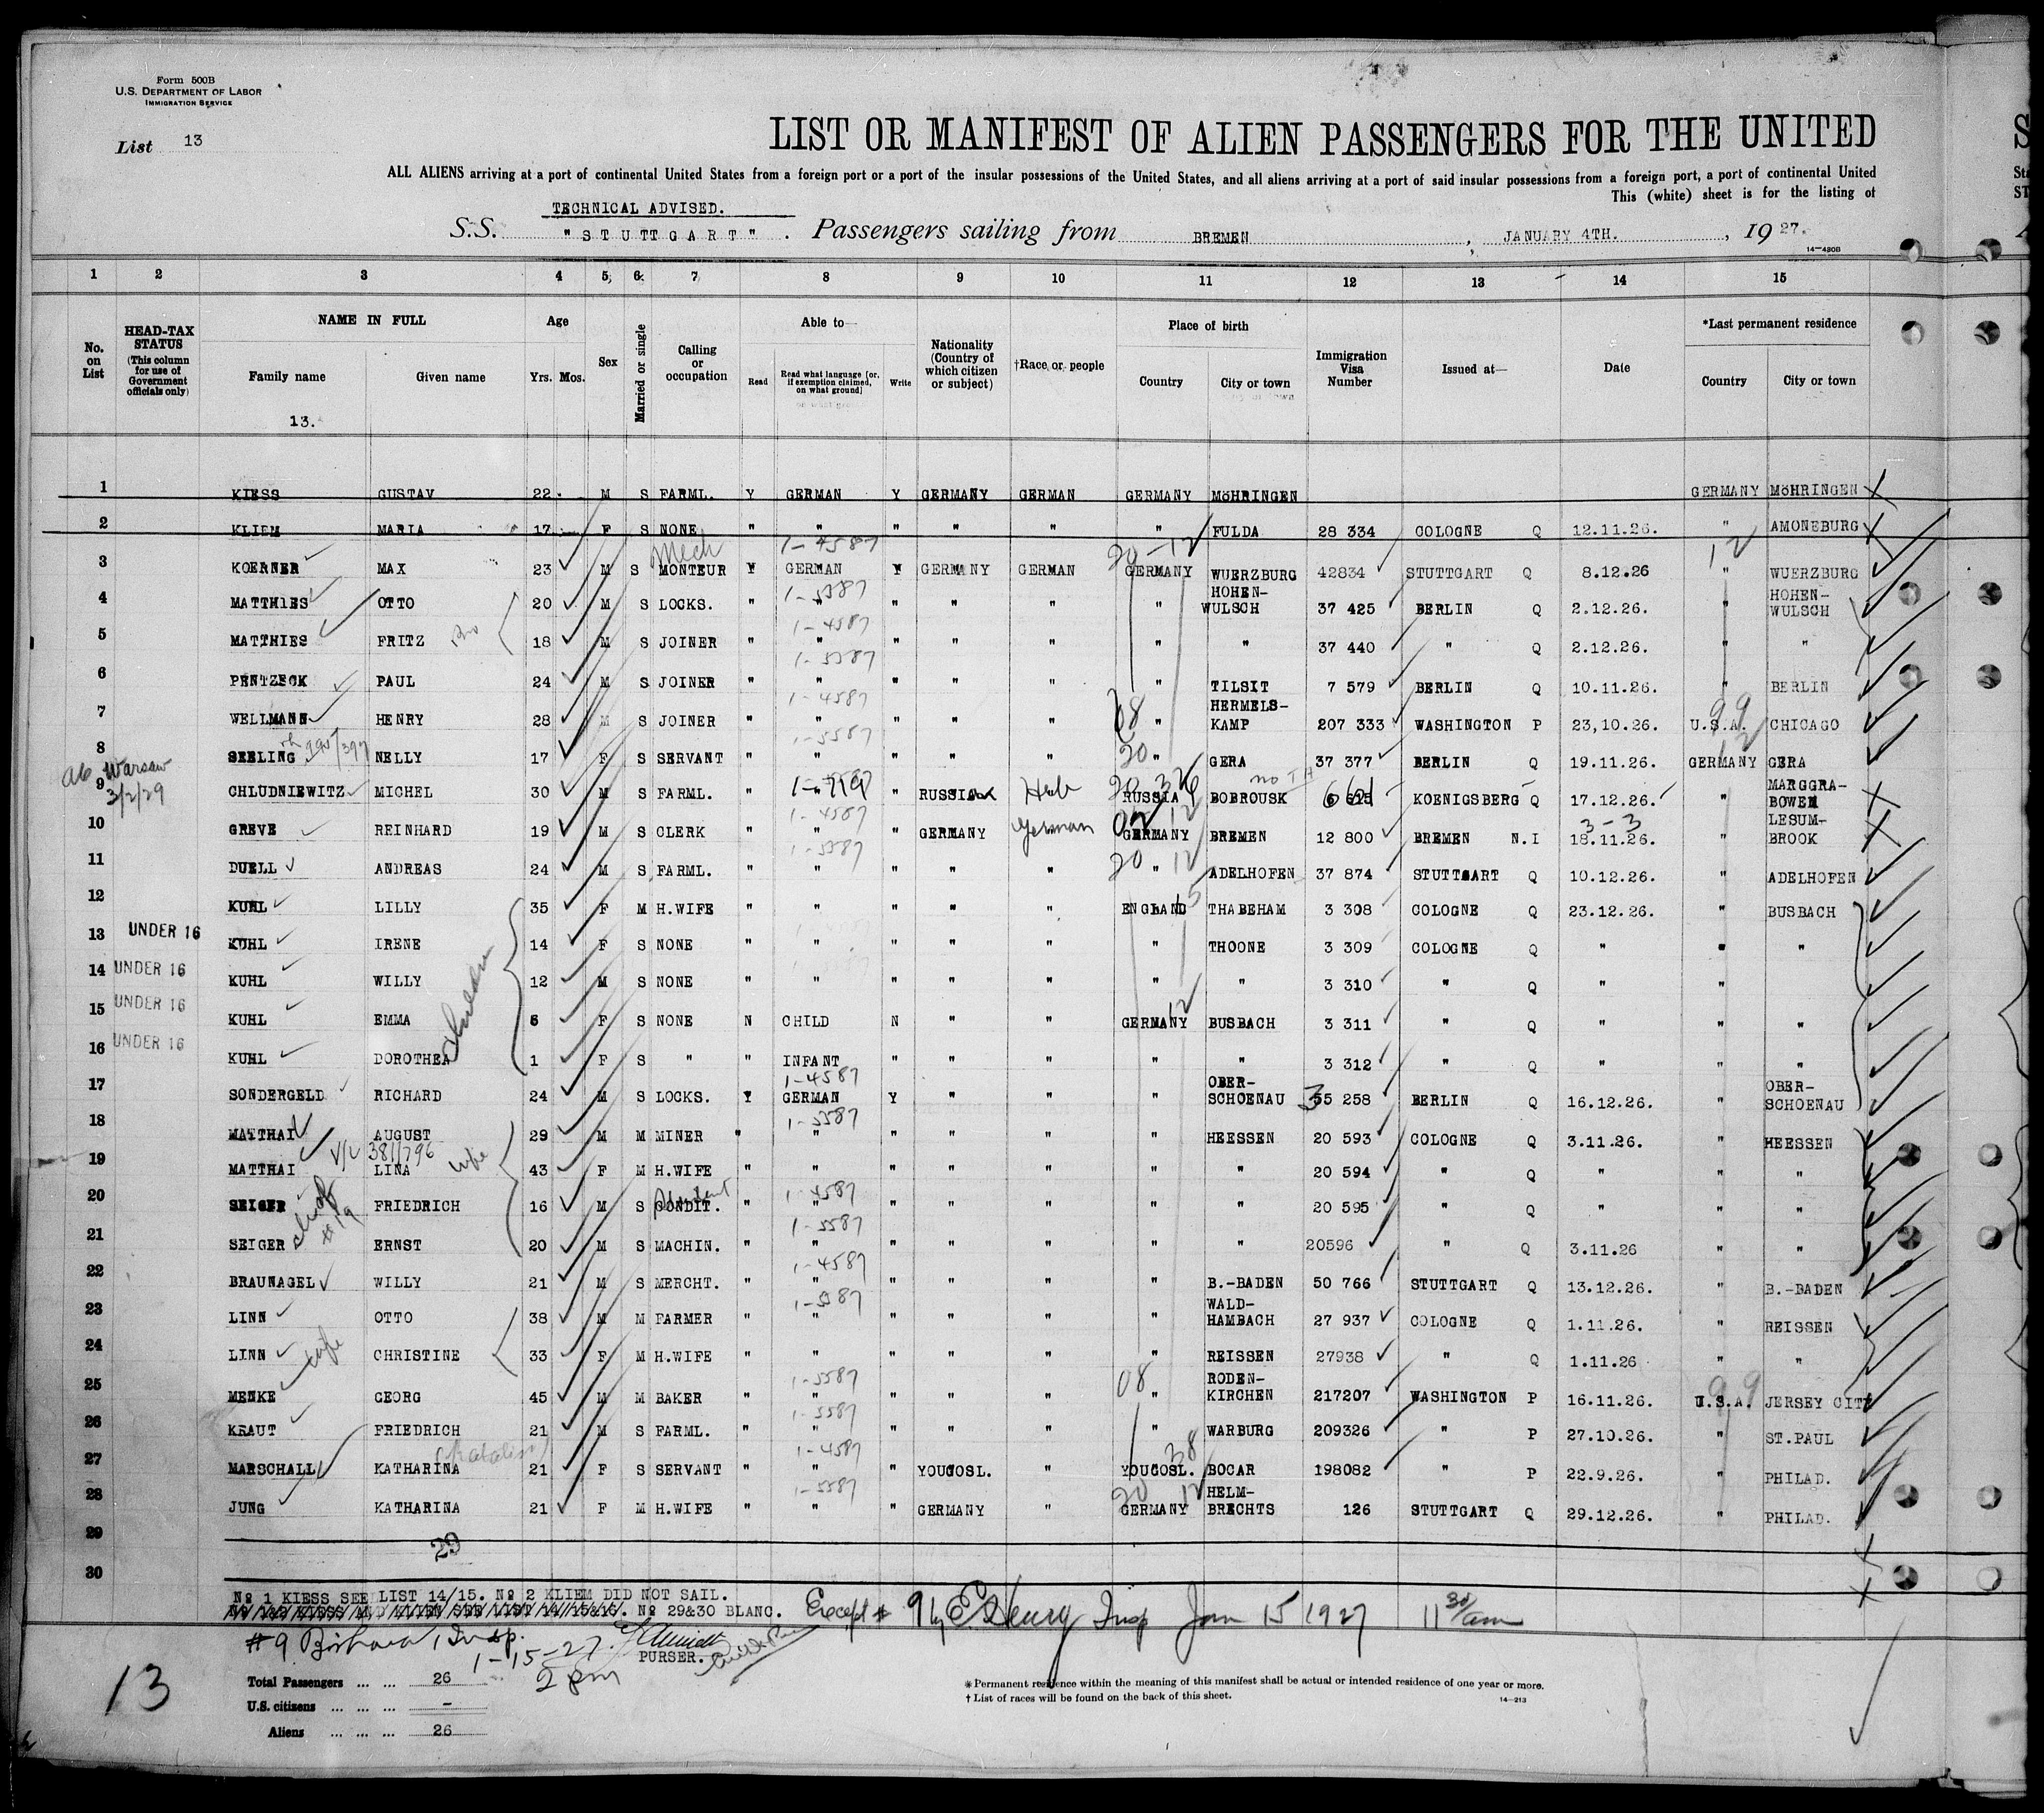 Form 500B
U.S. DEPARTMENT OF LABOR
IMMIGRATION SERVICE
List 13
LIST OR MANIFEST OF ALIEN PASSENGERS FOR THE UNITED
ALL ALIENS arriving at a port of continental United States from a foreign port or a port of the insular possessions of the United States, and all aliens arriving at a port of said insular possessions from a foreign port, a port of continental United
This (white) sheet is for the listing of
TECHNICAL ADVISED.
S.S. "STUTTGART". Passengers sailing from BREMEN, JANUARY 4TH., 1927.
14—430B
1 2 3 4 5 6 7 8 9 10 11 12 13 14 15
No. on List
HEAD-TAX STATUS (This column for use of Government officials only)
NAME IN FULL
Family name Given name
13.
Age
Yrs. Mos.
Sex
Married or single
Calling or occupation
Able to—
Read
Read what language [or, if exemption claimed, on what ground]
Write
Nationality (Country of which citizen or subject)
†Race or people
Place of birth
Country City or town
Immigration Visa Number
Issued at—
Date
*Last permanent residence
Country City or town
1 KIESS GUSTAV 22 M S FARML. Y GERMAN Y GERMANY GERMAN GERMANY MöHRINGEN GERMANY MöHRINGEN
2 KLIEM MARIA 17 F S NONE " " " " " " FULDA 28 334 COLOGNE Q 12.11.26. " AMONEBURG
Mech 1-4587 20-12 12
3 KOERNER MAX 23 M S MONTEUR Y GERMAN Y GERMANY GERMAN GERMANY WUERZBURG 42834 STUTTGART Q 8.12.26 " WUERZBURG
4 MATTHIES OTTO 20 M S LOCKS. " 1-3387 " " " " " HOHEN-WULSCH 37 425 BERLIN Q 2.12.26. " HOHEN-WULSCH
5 MATTHIES FRITZ Bro 18 M S JOINER " 1-4587 " " " " " " 37 440 " Q 2.12.26. " "
6 PENTZECK PAUL 24 M S JOINER " 1-3387 " " " " " TILSIT 7 579 BERLIN Q 10.11.26. " BERLIN
7 WELLMANN HENRY 28 M S JOINER " 1-4587 " " " " 08 " HERMELS-KAMP 207 333 WASHINGTON P 23,10.26. U.S.A. 99 CHICAGO
8 SEELING NELLY 17 F S SERVANT " 1-3387 " " " " 20 " GERA 37 377 BERLIN Q 19.11.26. GERMANY 12 GERA
Warsaw 3/2/29
9 CHLUDNIEWITZ MICHEL 30 M S FARML. " " " RUSSIA Heb RUSSIA BOBROUSK KOENIGSBERG Q 17.12.26. " MARGGRA-BOWEN
10 GREVE REINHARD 19 M S CLERK " 1-4587 " " GERMANY German GERMANY BREMEN 12 800 BREMEN N.I 3-3 18.11.26. " LESUM-BROOK
11 DUELL ANDREAS 24 M S FARML. " 1-3387 " " " " 20 12 " ADELHOFEN 37 874 STUTTGART Q 10.12.26. " ADELHOFEN
12 KUHL LILLY 35 F M H.WIFE " " " " " ENGLAND 15 THABEHAM 3 308 COLOGNE Q 23.12.26. " BUSBACH
13 UNDER 16 KUHL IRENE 14 F S NONE " " " " " " THOONE 3 309 COLOGNE Q " " "
14 UNDER 16 KUHL WILLY 12 M S NONE " " " " " " " 3 310 " Q " "
children
15 UNDER 16 KUHL EMMA 6 F S NONE N CHILD N " " GERMANY 12 BUSBACH 3 311 " Q " " "
16 UNDER 16 KUHL DOROTHEA 1 F S " " INFANT " " " " " 3 312 " Q " " "
17 SONDERGELD RICHARD 24 M S LOCKS. Y 1-4587 GERMAN Y " " " OBER-SCHOENAU 35 258 BERLIN Q 16.12.26. " OBER-SCHOENAU
18 MATTHAI AUGUST 29 M M MINER " 1-3387 " " " " " HEESSEN 20 593 COLOGNE Q 3.11.26. " HEESSEN
V/L 381/796
19 MATTHAI LINA wife 43 F M H.WIFE " " " " " " " 20 594 " Q " " "
20 SEIGER FRIEDRICH 16 M S CONDIT. Student " 1-4587 " " " " " " 20 595 " Q " " "
#19
21 SEIGER ERNST 20 M S MACHIN. " 1-3387 " " " " " " 20596 " Q 3.11.26 " "
22 BRAUNAGEL WILLY 21 M S MERCHT. " 1-4587 " " " " " B.-BADEN 50 766 STUTTGART Q 13.12.26. " B.-BADEN
23 LINN OTTO 38 M M FARMER " 1-3387 " " " " " WALD-HAMBACH 27 937 COLOGNE Q 1.11.26. " REISSEN
24 LINN wife CHRISTINE 33 F M H.WIFE " " " " " " REISSEN 27938 " Q 1.11.26 " "
25 MENKE GEORG 45 M M BAKER " 1-3387 " " " " 08 " RODEN-KIRCHEN 217207 WASHINGTON P 16.11.26. U.S.A. 99 JERSEY CITY
26 KRAUT FRIEDRICH 21 M S FARML. " 1-3387 " " " " " WARBURG 209326 " P 27.10.26. " ST.PAUL
27 MARSCHALL KATHARINA 21 F S SERVANT " 1-4587 " " YOUGOSL. " YOUGOSL. 38 BOCAR 198082 " P 22.9.26. " PHILAD.
28 JUNG KATHARINA 21 F M H.WIFE " 1-3387 " " GERMANY " 20 12 GERMANY HELM-BRECHTS 126 STUTTGART Q 29.12.26. " PHILAD.
29
29
30
No 1 KIESS SEE LIST 14/15. No 2 KLIEM DID NOT SAIL.
No 29&30 BLANC. Except # 9 by E. Henry Insp Jan 15 1927 11 30/am
#9 Insp.
1-15-27
2 pm
PURSER.
Total Passengers 26
U.S. citizens -
Aliens 26
13
* Permanent residence within the meaning of this manifest shall be actual or intended residence of one year or more.
† List of races will be found on the back of this sheet.
14—213